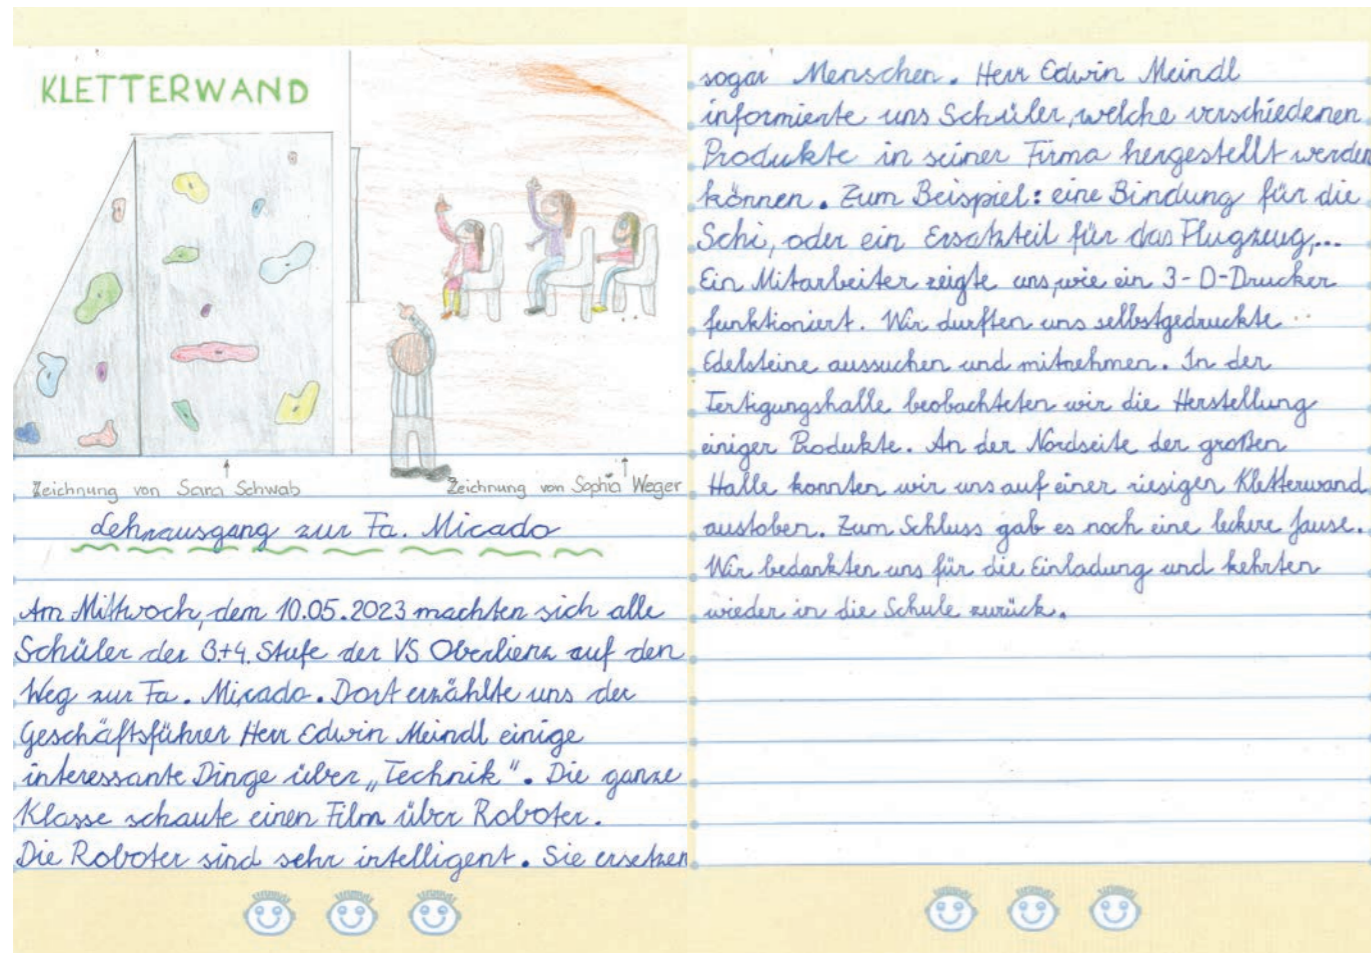 KLETTERWAND
Zeichnung von Sara Schwab
Zeichnung von Sophia Weger
Lehrausgang zur Fa. Micado
Am Mittwoch, dem 10.05.2023 machten sich alle
Schüler der 3.+4. Stufe der VS Oberlienz auf den
Weg zur Fa. Micado. Dort erzählte uns der
Geschäftsführer Herr Edwin Meindl einige
interessante Dinge über „Technik“. Die ganze
Klasse schaute einen Film über Roboter.
Die Roboter sind sehr intelligent. Sie ersetzen
sogar Menschen. Herr Edwin Meindl
informierte uns Schüler, welche verschiedenen
Produkte in seiner Firma hergestellt werden
können. Zum Beispiel: eine Bindung für die
Schi, oder ein Ersatzteil für das Flugzeug,...
Ein Mitarbeiter zeigte uns, wie ein 3-D-Drucker
funktioniert. Wir durften uns selbstgedruckte
Edelsteine aussuchen und mitnehmen. In der
Fertigungshalle beobachteten wir die Herstellung
einiger Produkte. An der Nordseite der großen
Halle konnten wir uns auf einer riesigen Kletterwand
austoben. Zum Schluss gab es noch eine leckere Jause.
Wir bedankten uns für die Einladung und kehrten
wieder in die Schule zurück.